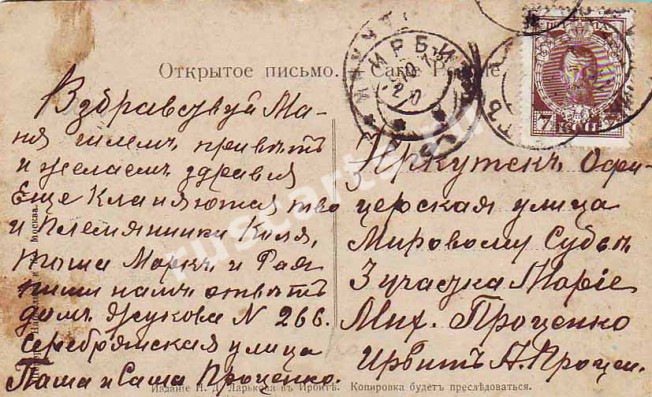 Открытое письмо. Carte Postale.
ИРБИТ
7 КОП
Вздравствуй Ма-
ня шлем приветъ
и желаем здравiя
Еще Кланяются тво
и Племянники Коля,
Тоша Маркъ и Рая
пиши намъ ответъ
домъ Жукова N 266.
Серебрянская улица
Паша и Саша Проценко.
Иркутскъ Офи-
церская улица
Мировому Судьѣ
3 участка Марiе
Мих. Проценко
Ирбитъ А. Процен.
Изданiе Н. Д. Ларькова въ Ирбитѣ. Копировка будетъ преслѣдоваться.
Москва.
ruscarte.ru